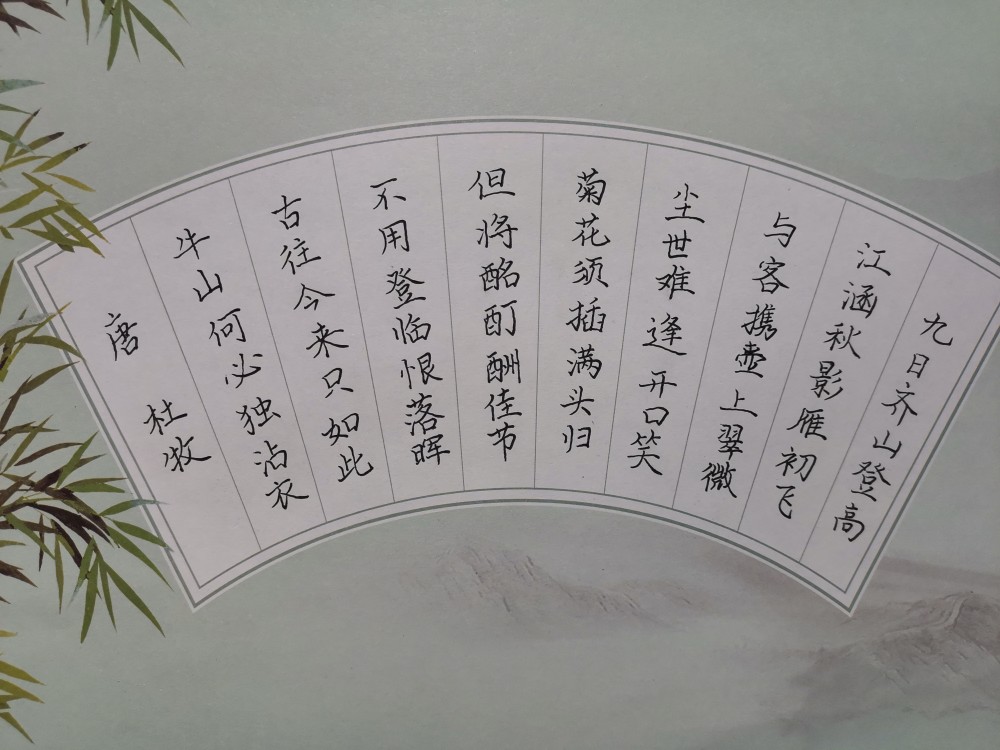 九日齐山登高
江涵秋影雁初飞
与客携壶上翠微
尘世难逢开口笑
菊花须插满头归
但将酩酊酬佳节
不用登临恨落晖
古往今来只如此
牛山何必独沾衣
唐 杜牧